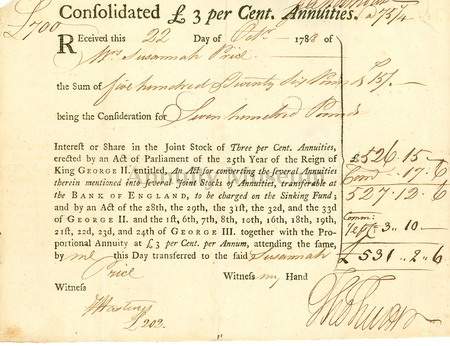 £700
Consolidated £ 3 per Cent. Annuities.
Received this 22 Day of Octr. 1788 of
Mrs Susannah Price
the Sum of five hundred & twenty Six Pounds 15/-
being the Consideration for Seven hundred Pounds
Interest or Share in the Joint Stock of Three per Cent. Annuities,
erected by an Act of Parliament of the 25th Year of the Reign of
King GEORGE II. entitled, An Act for converting the several Annuities
therein mentioned into several Joint Stocks of Annuities, transferable at
the BANK OF ENGLAND, to be charged on the Sinking Fund;
and by an Act of the 28th, the 29th, the 31st, the 32d, and the 33d
of GEORGE II. and the 1st, 6th, 7th, 8th, 10th, 16th, 18th, 19th,
21st, 22d, 23d, and 24th of GEORGE III. together with the Pro-
portional Annuity at £ 3 per Cent. per Annum, attending the same,
by me this Day transferred to the said Susannah
Price Witness my Hand
Witness
J Hastings
£526.15-
17.6
527.12.6
3.10-
£531.2.6